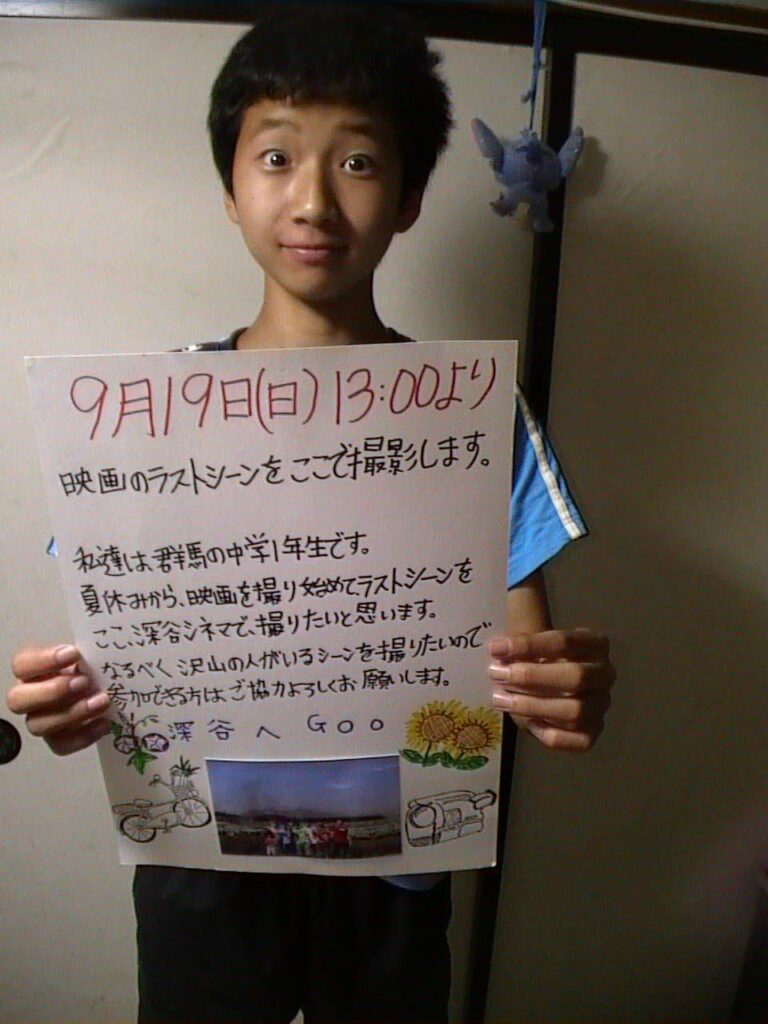 9月19日(日) 13:00より
映画のラストシーンをここで撮影します。
私達は群馬の中学1年生です。
夏休みから、映画を撮り始めてラストシーンを
ここ、深谷シネマで、撮りたいと思います。
なるべく沢山の人がいるシーンを撮りたいので
参加できる方はご協力よろしくお願いします。
深谷へGoo